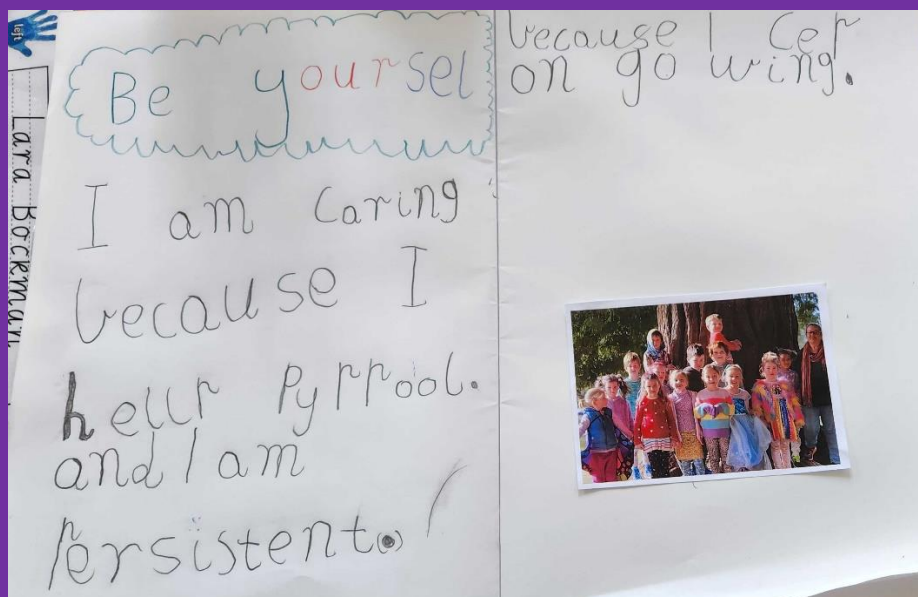 left
Lara Bockman
Be yoursel
I am caring
because I
hellp Pyppool.
and I am
persistent.
because I Cep
on go wing.